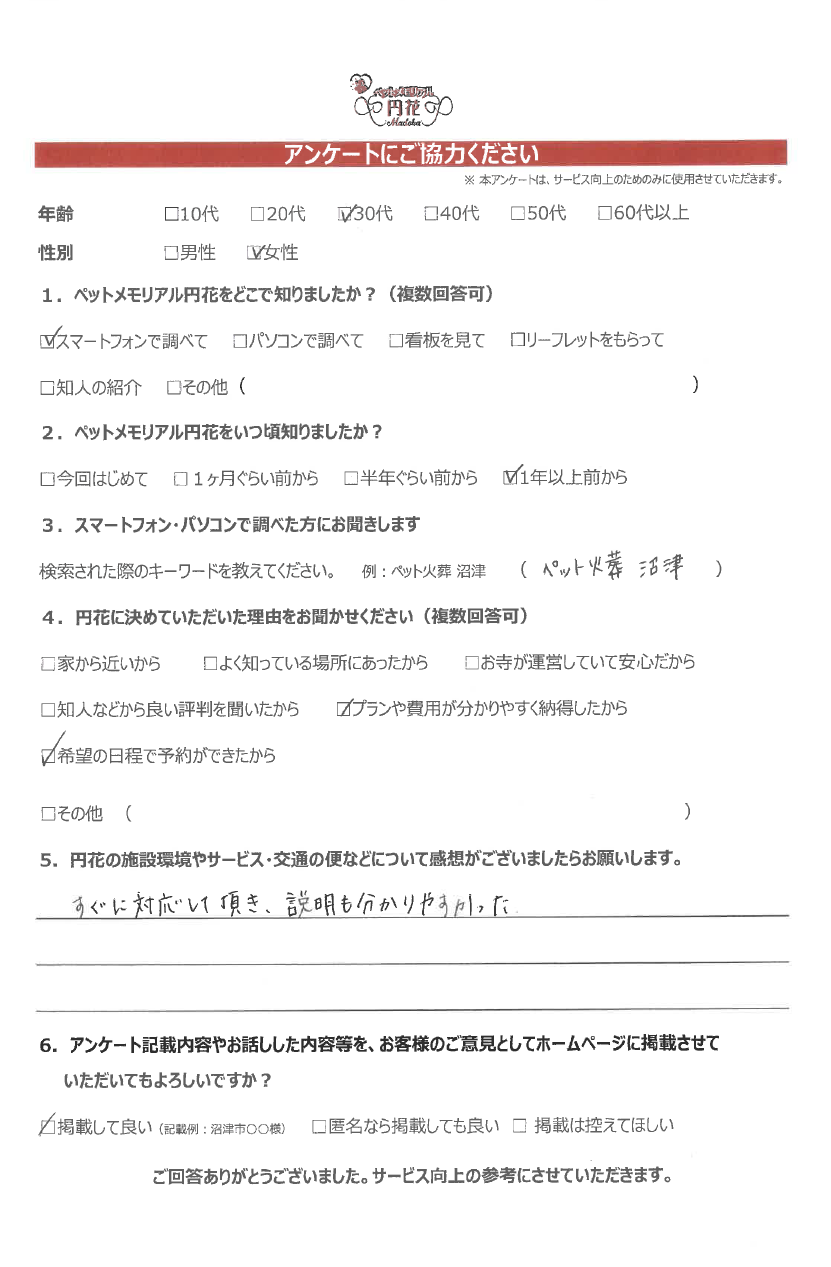 ペットメモリアル
円花
Madoka
アンケートにご協力ください
※ 本アンケートは、サービス向上のためのみに使用させていただきます。
年齢 □10代 □20代 ☑30代 □40代 □50代 □60代以上
性別 □男性 ☑女性
1．ペットメモリアル円花をどこで知りましたか？（複数回答可）
☑スマートフォンで調べて □パソコンで調べて □看板を見て □リーフレットをもらって
□知人の紹介 □その他（ ）
2．ペットメモリアル円花をいつ頃知りましたか？
□今回はじめて □１ヶ月ぐらい前から □半年ぐらい前から ☑1年以上前から
3．スマートフォン・パソコンで調べた方にお聞きします
検索された際のキーワードを教えてください。 例：ペット火葬 沼津 （ペット火葬 沼津）
4．円花に決めていただいた理由をお聞かせください（複数回答可）
□家から近いから □よく知っている場所にあったから □お寺が運営していて安心だから
□知人などから良い評判を聞いたから ☑プランや費用が分かりやすく納得したから
☑希望の日程で予約ができたから
□その他 （ ）
5．円花の施設環境やサービス・交通の便などについて感想がございましたらお願いします。
すぐに対応して頂き、説明も分かりやすかった
6．アンケート記載内容やお話しした内容等を、お客様のご意見としてホームページに掲載させて
いただいてもよろしいですか？
☑掲載して良い（記載例：沼津市〇〇様） □匿名なら掲載しても良い □ 掲載は控えてほしい
ご回答ありがとうございました。サービス向上の参考にさせていただきます。